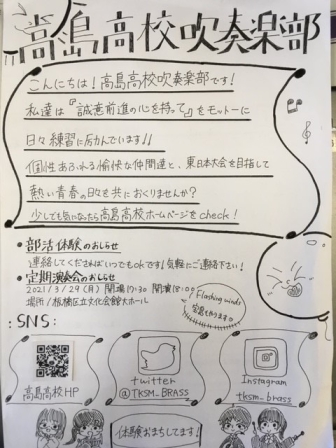 高島高校吹奏楽部
こんにちは!高島高校吹奏楽部です!
私達は『誠意前進の心を持って』をモットーに
日々練習に励んでいます!!
個性あふれる愉快な仲間達と、東日本大会を目指して
熱い青春の日々を共におくりませんか?
少しでも気になったら高島高校ホームページをcheck!
・部活体験のおしらせ
連絡してくださればいつでもokです!気軽にご連絡下さい!
・定期演奏会のおしらせ
2021/3/29(月) 開場17:30 開演18:00
場所/板橋区立文化会館大ホール
Flashing winds
:SNS:
高島高校HP
twitter
@TKSM_BRASS
Instagram
tksm_brass
体験おまちしてます!